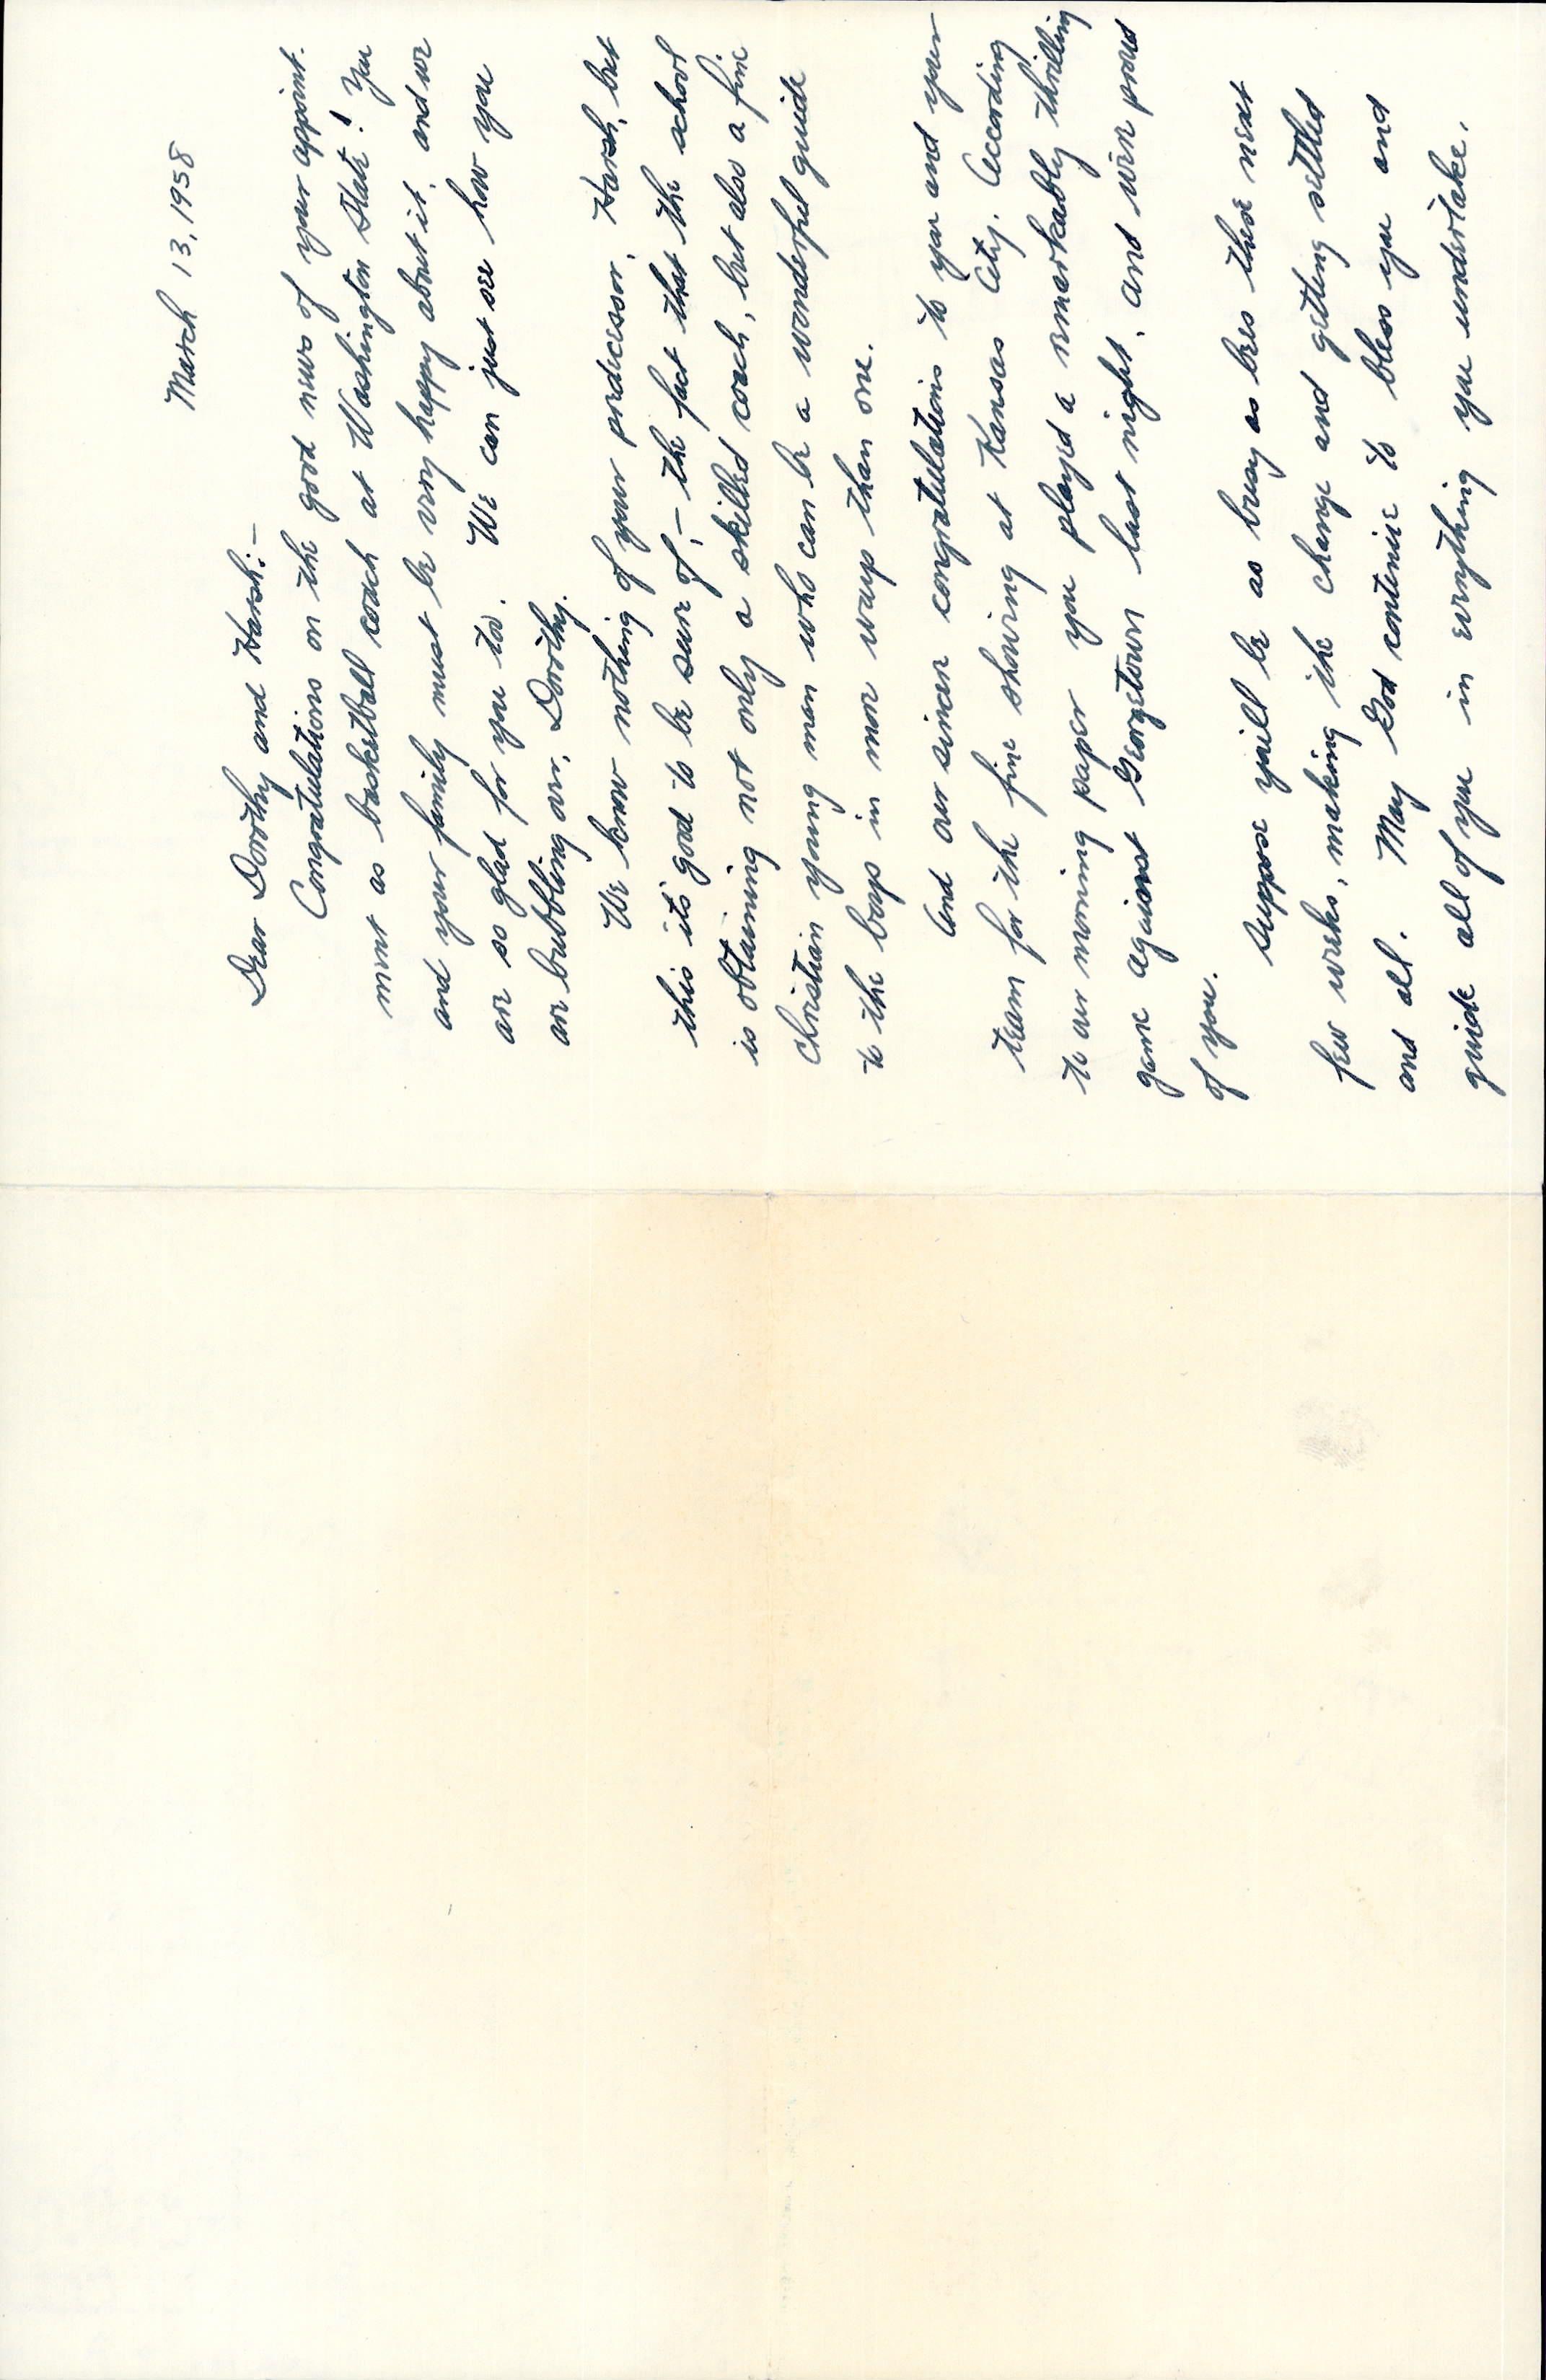 March 13, 1958
Dear Dorothy and Harsh:-
Congratulations on the good news of your appoint-
ment as basketball coach at Washington State! You
and your family must be very happy about it, and we
are so glad for you too. We can just see how you
are bubbling over, Dorothy.
We know nothing of your predicessor, Harsh, but
this it's good to be sure of,- the fact that the school
is obtaining not only a skilled coach, but also a fine
Christian young man who can be a wonderful guide
to the boys in more ways than one.
And our sincere congratulations to you and your
team for the fine showing at Kansas City. According
to our morning paper you played a remarkably thrilling
game against Georgetown last night, and we're proud
of you.
Suppose you'll be as busy as bees these next
few weeks, making the change and getting settled
and all. May God continue to bless you and
guide all of you in everything you undertake.